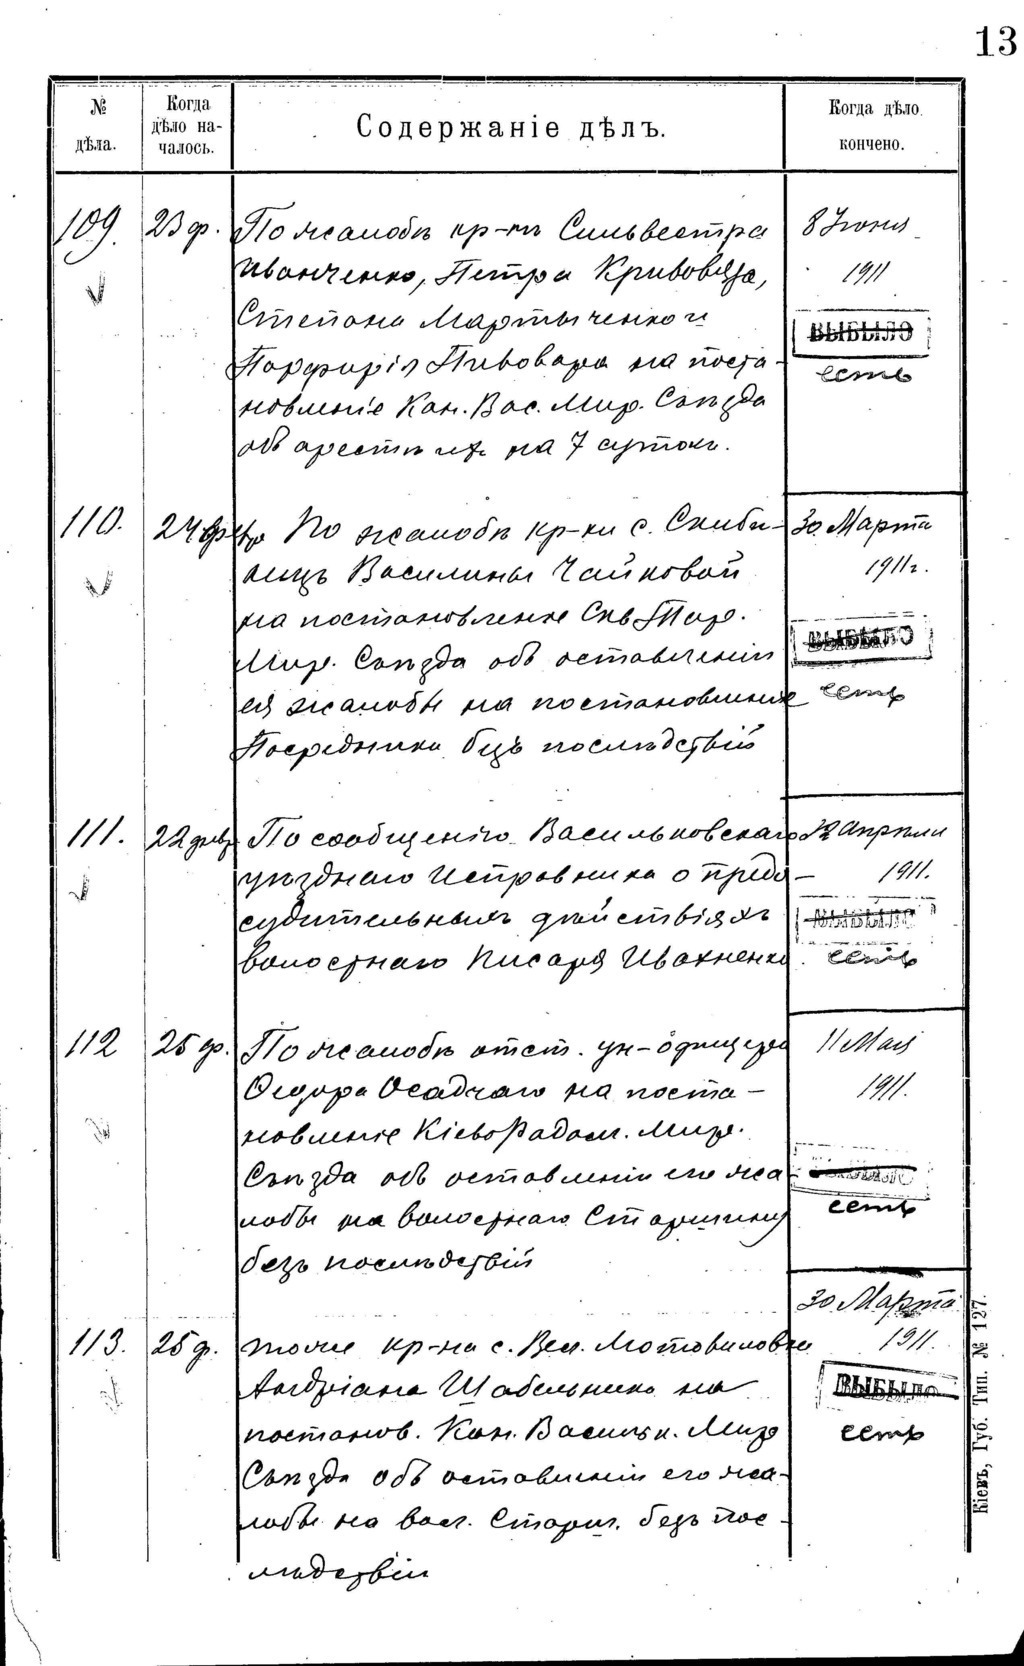 13
№ дѣла.
Когда дѣло началось.
Содержаніе дѣлъ.
Когда дѣло кончено.
109.
23 ф.
По жалобѣ кр-нъ Сильвестра
Иванченко, Петра Кривовяза,
Степана Мартыченко и
Порфирія Пивовара на поста-
новленіе Кан. Вас. Мир. Съѣзда
объ арестѣ ихъ на 7 сутокъ.
8 Іюня
1911
ВЫБЫЛО
есть
110.
24 фев
По жалобѣ кр-ки с. Скиби-
нецъ Василины Чайковой
на постановленіе Скв Тар.
Мир. Съѣзда объ оставленіи
ея жалобы на постановленіе
Посредника безъ послѣдствій
30 Марта
1911 г.
ВЫБЫЛО
есть
111.
22 февр
По сообщенію Васильковскаго
уѣзднаго Исправника о предо-
судительныхъ дѣйствіяхъ
волостнаго Писаря Ивахненко.
12 Апрѣля
1911.
ВЫБЫЛО
есть
112
25 ф.
По жалобѣ отст. ун-офицера
Федора Осадчаго на поста-
новленіе КіевоРадом. Мир.
Съѣзда объ оставленіи его жа-
лобы на волостнаго Старшину
безъ послѣдствій
11 Мая
1911.
ВЫБЫЛО
есть
113.
25 ф.
тоже кр-на с. Вел. Мотовиловки
Андріана Шабельника на
постанов. Кан. Васильк. Мир
Съѣзда объ оставленіи его жа-
лобы на вол. Старш. безъ пос-
лѣдствій
30 Марта
1911.
ВЫБЫЛО
есть
Кіевъ, Губ. Тип. № 127.